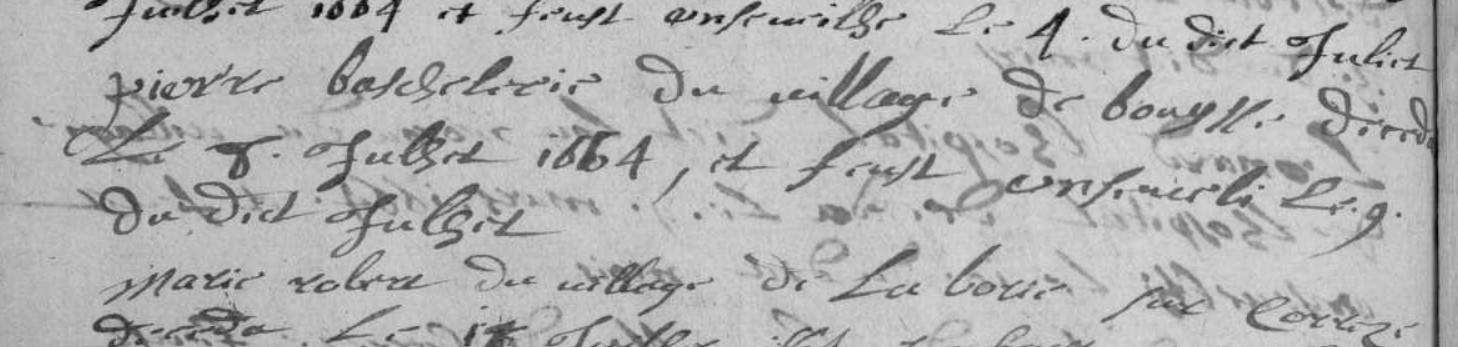 Juilhet 1664 et feust ensevelihe Le 4. du dict Juliet
pierre bascheleirie du village de bouysse decedé
Le 8. Julhet 1664, et feust enseveli Le.9.
du dict Julhet
Marie robert du village de La borie sur Correze
deceda Le